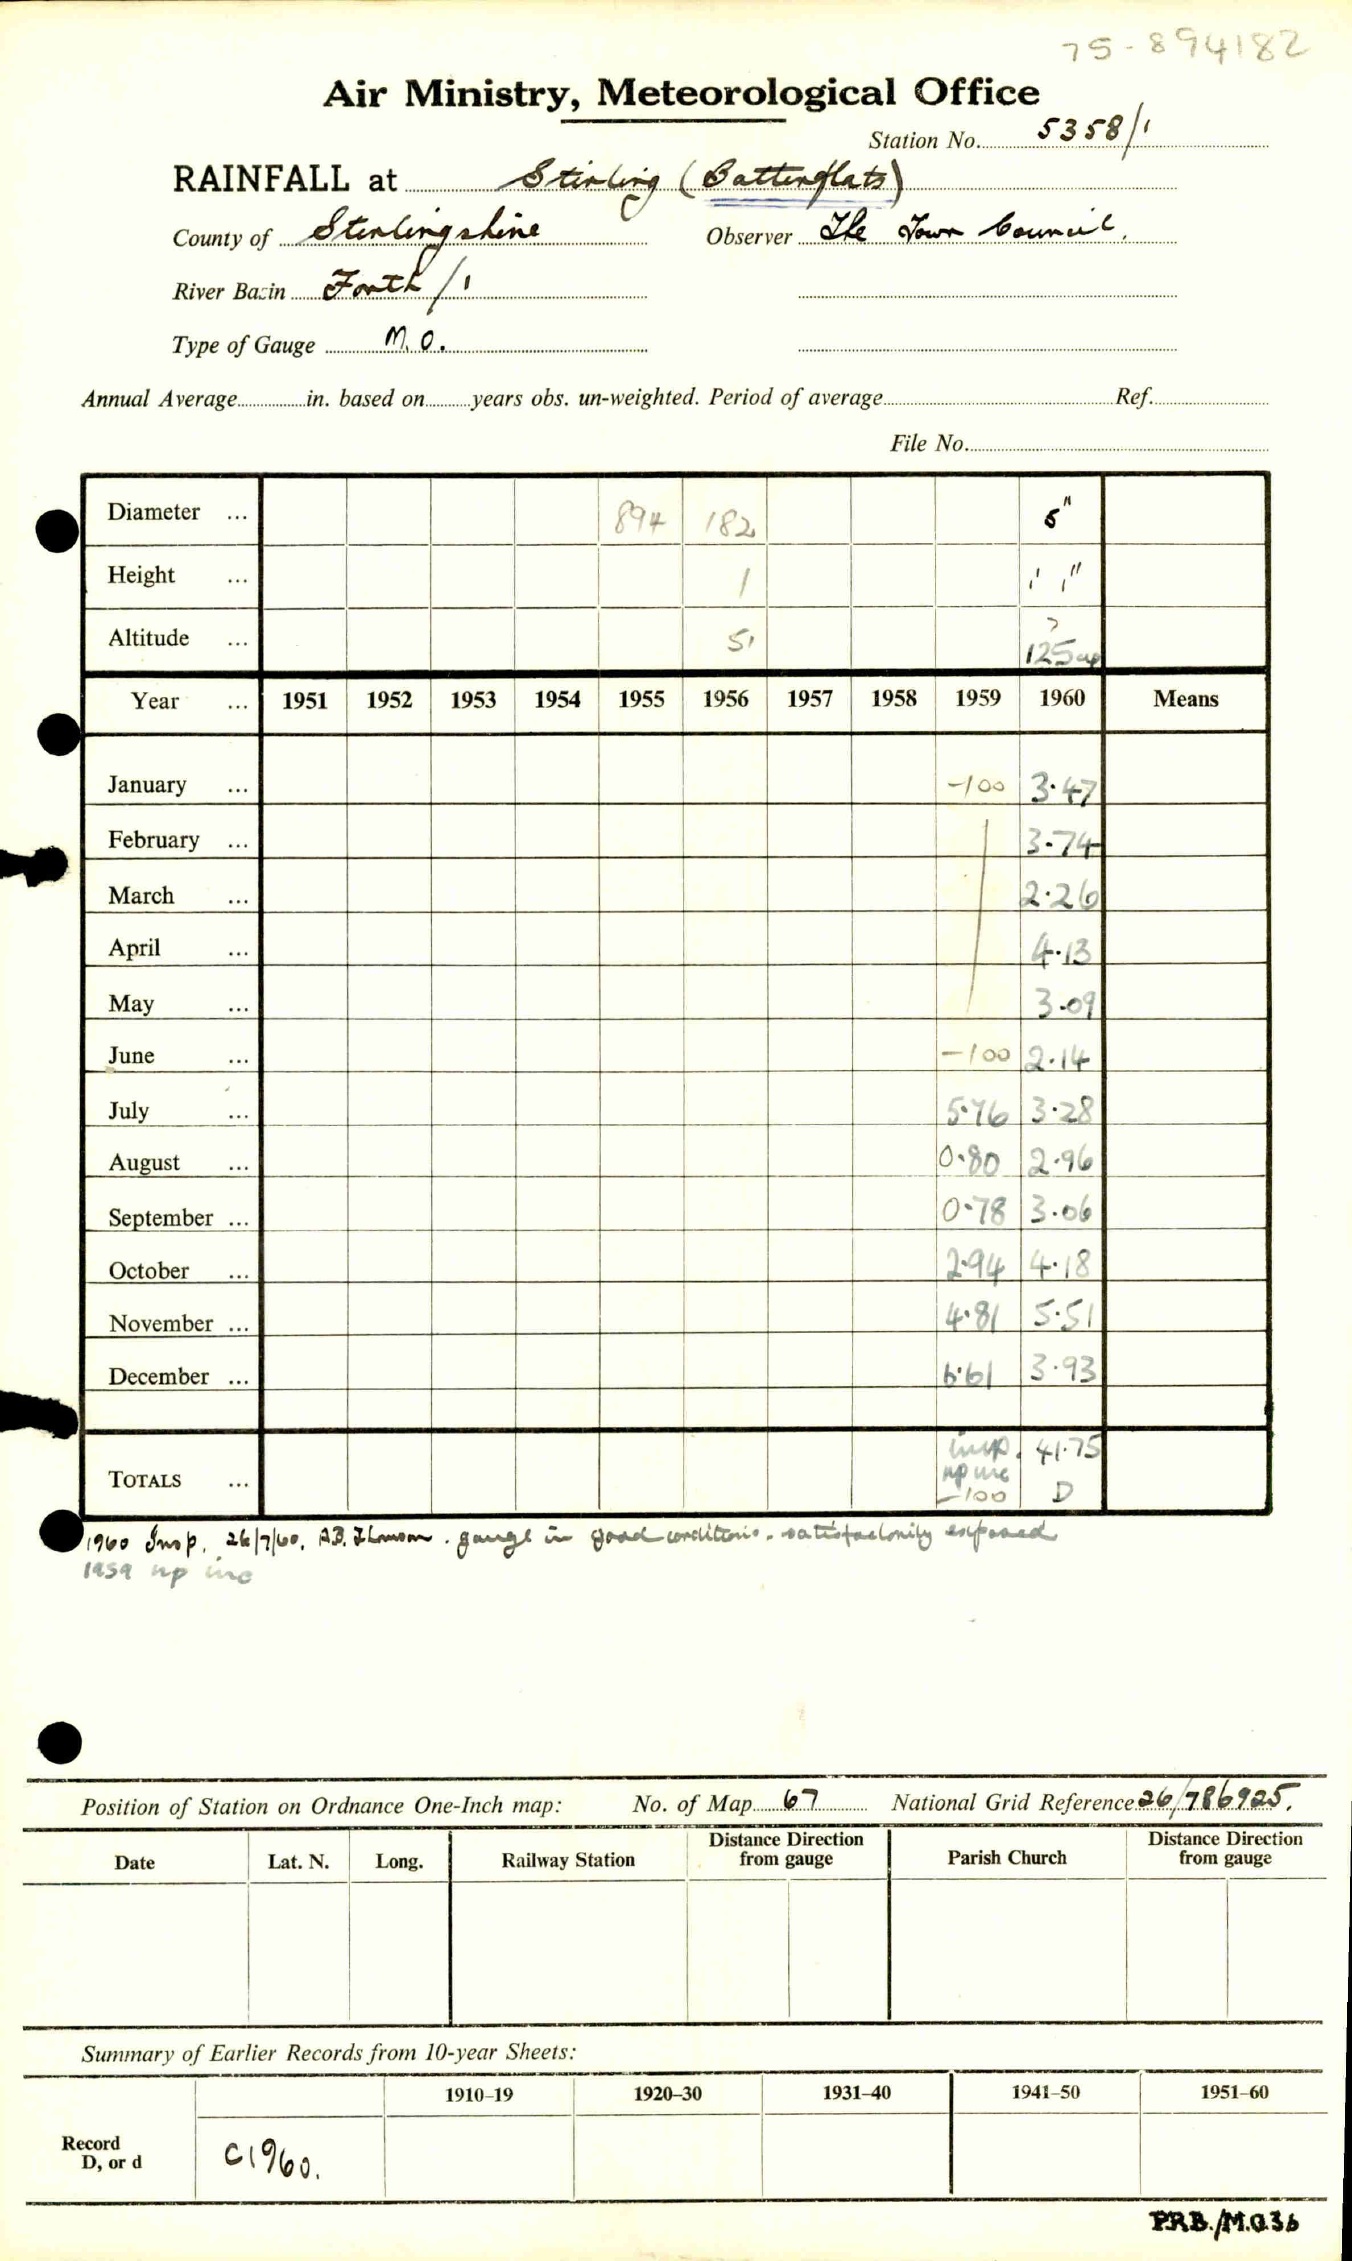 75-894182
Air Ministry, Meteorological Office
Station No. 5358/1
RAINFALL at Stirling (Batterflats)
County of Stirlingshire Observer The Town Council.
River Basin Forth/1
Type of Gauge M.O.
Annual Average in. based on years obs. un-weighted. Period of average Ref.
File No.
Diameter ... 894 182 5"
Height ... 1 1' 1"
Altitude ... 51 ? 125
Year ... 1951 1952 1953 1954 1955 1956 1957 1958 1959 1960 Means
January ... -100 3.47
February ... 3.74
March ... 2.26
April ... 4.13
May ... 3.09
June ... -100 2.14
July ... 5.76 3.28
August ... 0.80 2.96
September ... 0.78 3.06
October ... 2.94 4.18
November ... 4.81 5.51
December ... 6.61 3.93
TOTALS ... inc np inc -100 41.75 D
1960 Insp. 26/7/60. A.B. Thomson. gauge in good condition. satisfactorily exposed
1959 np inc
Position of Station on Ordnance One-Inch map: No. of Map 67 National Grid Reference 26/786925.
Date Lat. N. Long. Railway Station Distance Direction from gauge Parish Church Distance Direction from gauge
Summary of Earlier Records from 10-year Sheets:
1910-19 1920-30 1931-40 1941-50 1951-60
Record D, or d C1960.
P.R.B./M.O.36